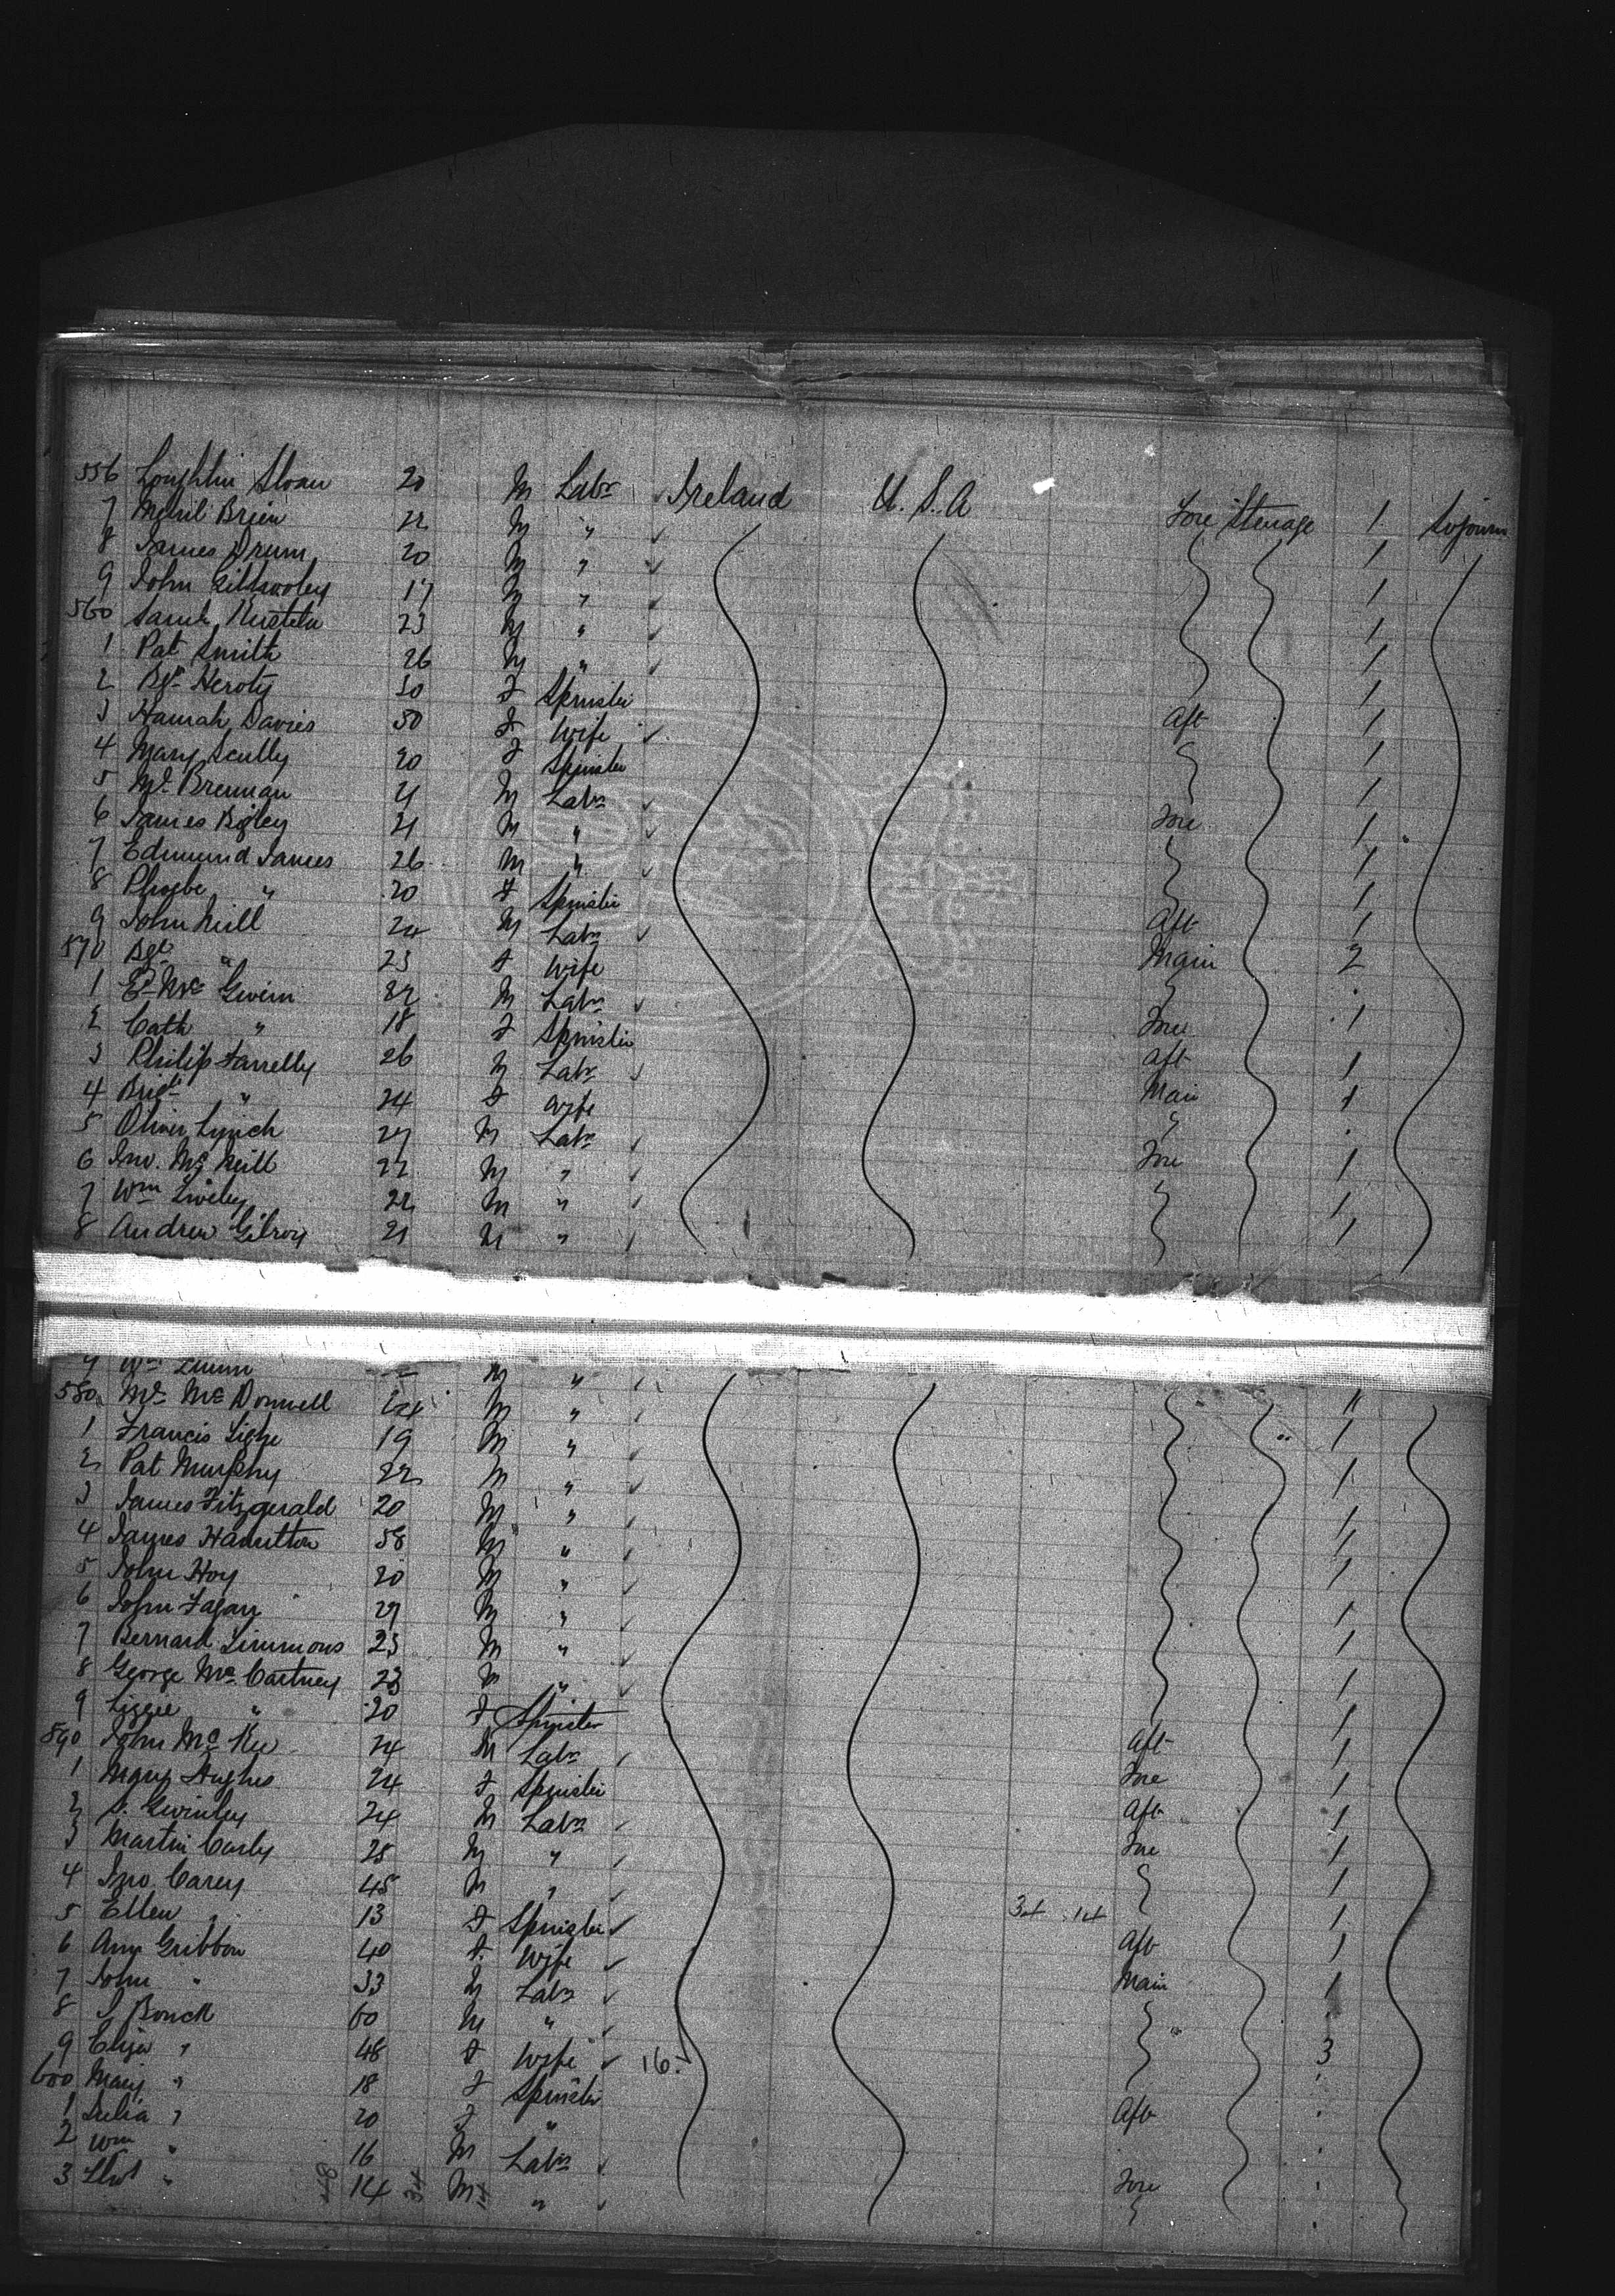 556 Loughlin Sloan 20 M Labr Ireland U.S.A Fore Steerage 1 Sojourn
7 Brien 22 M " 1
8 James Drum 20 M " 1
9 John 17 M " 1
560 Saml 23 M " 1
1 Pat Smith 26 M " 1
2 Bgt Heroty 30 F Spinster Aft 1
3 Hannah Davies 50 F Wife 1
4 Mary Scully 20 F Spinster 1
5 Ml Brennan 21 M Labr Fore 1
6 James Bigley 21 M " 1
7 Edmund James 26 M " 1
8 Phoebe " 20 F Spinster Aft 1
9 John Neill 24 M Labr Main 2
570 Bgt " 23 F Wife
1 Mc Givern 82 M Labr Fore 1
2 Cath " 18 F Spinster Aft 1
3 Philip Farrelly 26 M Labr Main 1
4 Brigt " 24 F Wife "
5 Oliver Lynch 27 M Labr Fore 1
6 Jno. Mc Neill 22 M " 1
7 Wm Lively 22 M " 1
8 Andrew Gilroy 21 M "
9 Wm M "
580 Ml Mc Donnell 24 M " 1
1 Francis Lighe 19 M " 1
2 Pat Murphy 22 M " 1
3 James Fitzgerald 20 M " 1
4 James Hamilton 58 M " 1
5 John Hoy 20 M " 1
6 John Fagan 27 M " 1
7 Bernard Simmons 23 M " 1
8 George Mc Cartney 23 M " 1
9 Lizzie " 20 F Spinster Aft 1
590 John Mc Kee 24 M Labr Fore 1
1 Mary Hughes 24 F Spinster Aft 1
2 S. 24 M Labr Fore 1
3 Martin 25 M " 1
4 Jno Carey 45 M " 34 14 1
5 Ellen " 13 F Spinster Aft 1
6 Ann Gribbon 40 F Wife Main 1
7 John " 33 M Labr
8 J Bonck 60 M " 3
9 Eliza " 48 F Wife 16
600 Mary " 18 F Spinster Aft
1 Julia " 20 F "
2 Wm " 16 M Labr Fore
3 " 48 14 34 M 14 "